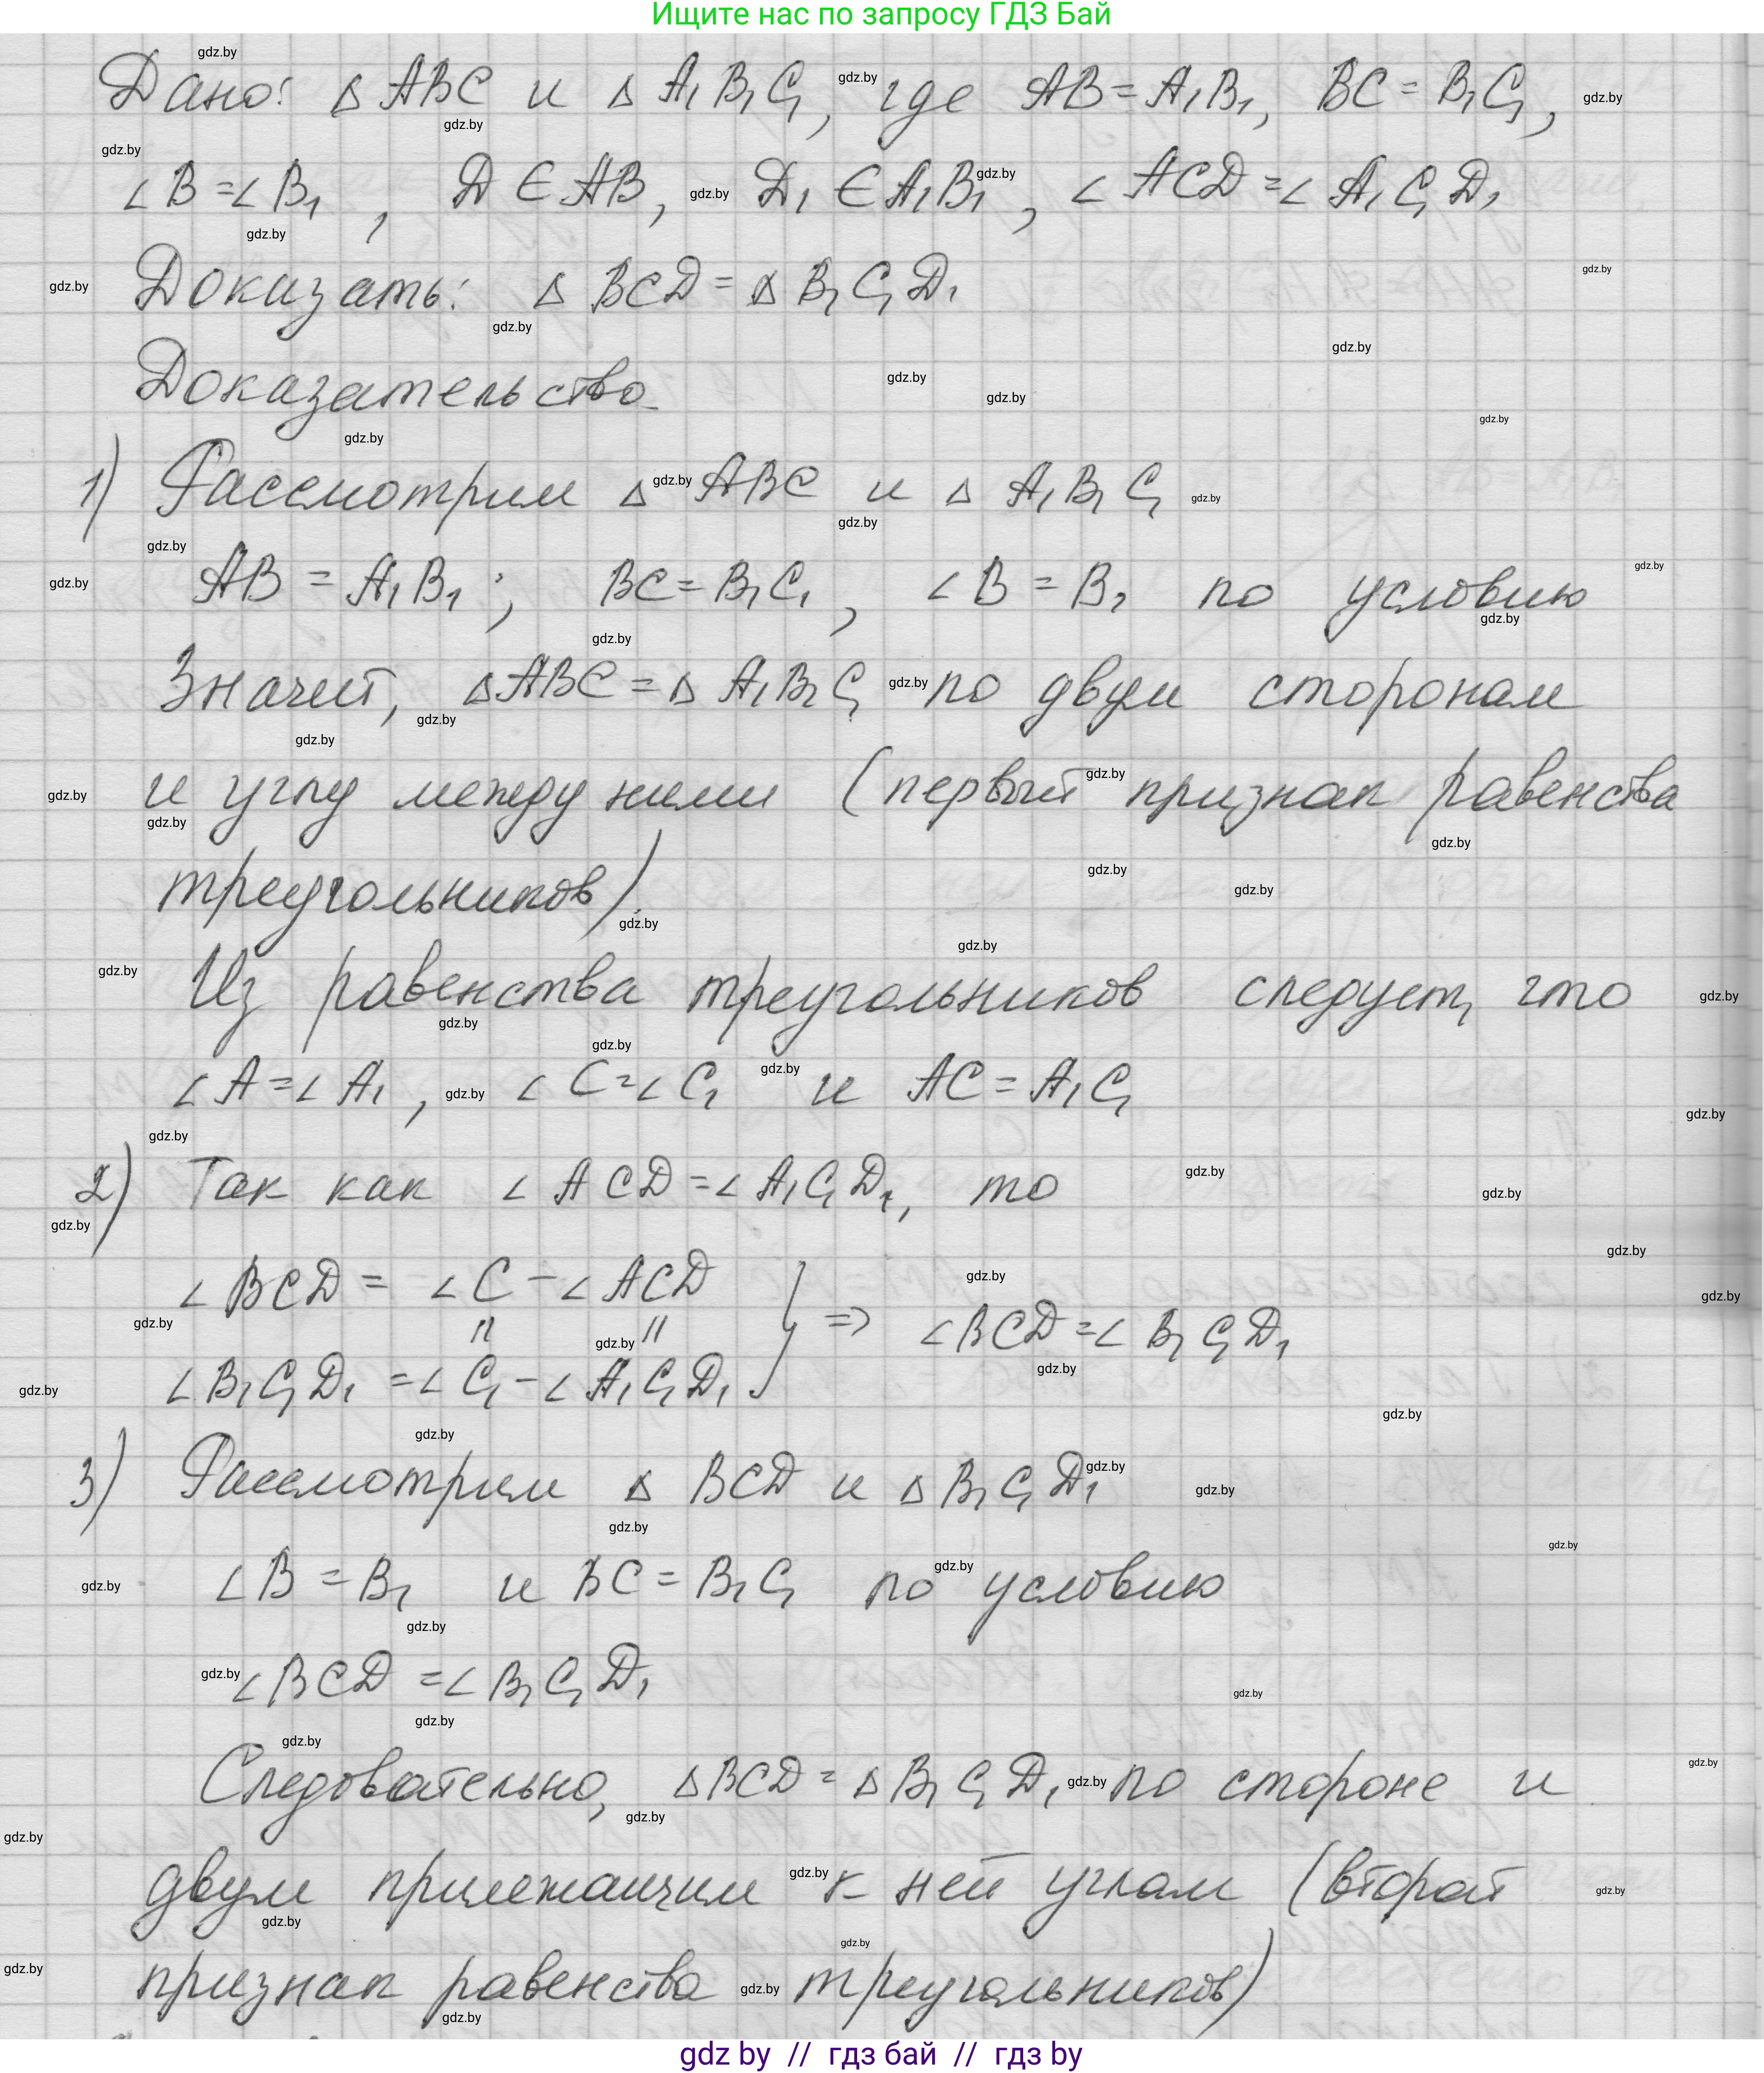 Ищите нас по запросу ГДЗ Бай
Дано: Δ ABC и Δ A₁B₁C₁, где AB = A₁B₁, BC = B₁C₁,
∠B = ∠B₁, D ∈ AB, D₁ ∈ A₁B₁, ∠ACD = ∠A₁C₁D₁
Доказать: Δ BCD = Δ B₁C₁D₁
Доказательство
1) Рассмотрим Δ ABC и Δ A₁B₁C₁
AB = A₁B₁; BC = B₁C₁, ∠B = B₁ по условию
Значит, ΔABC = Δ A₁B₁C₁ по двум сторонам
и углу между ними (первый признак равенства
треугольников).
Из равенства треугольников следует, что
∠A = ∠A₁, ∠C = ∠C₁ и AC = A₁C₁
2) Так как ∠ACD = ∠A₁C₁D₁, то
∠BCD = ∠C − ∠ACD
|| || } => ∠BCD = ∠B₁C₁D₁
∠B₁C₁D₁ = ∠C₁ − ∠A₁C₁D₁
3) Рассмотрим Δ BCD и Δ B₁C₁D₁
∠B = B₁ и BC = B₁C₁ по условию
∠BCD = ∠B₁C₁D₁
Следовательно, ΔBCD = ΔB₁C₁D₁ по стороне и
двум прилежащим к ней углам (второй
признак равенства треугольников)
gdz by // гдз бай // гдз by